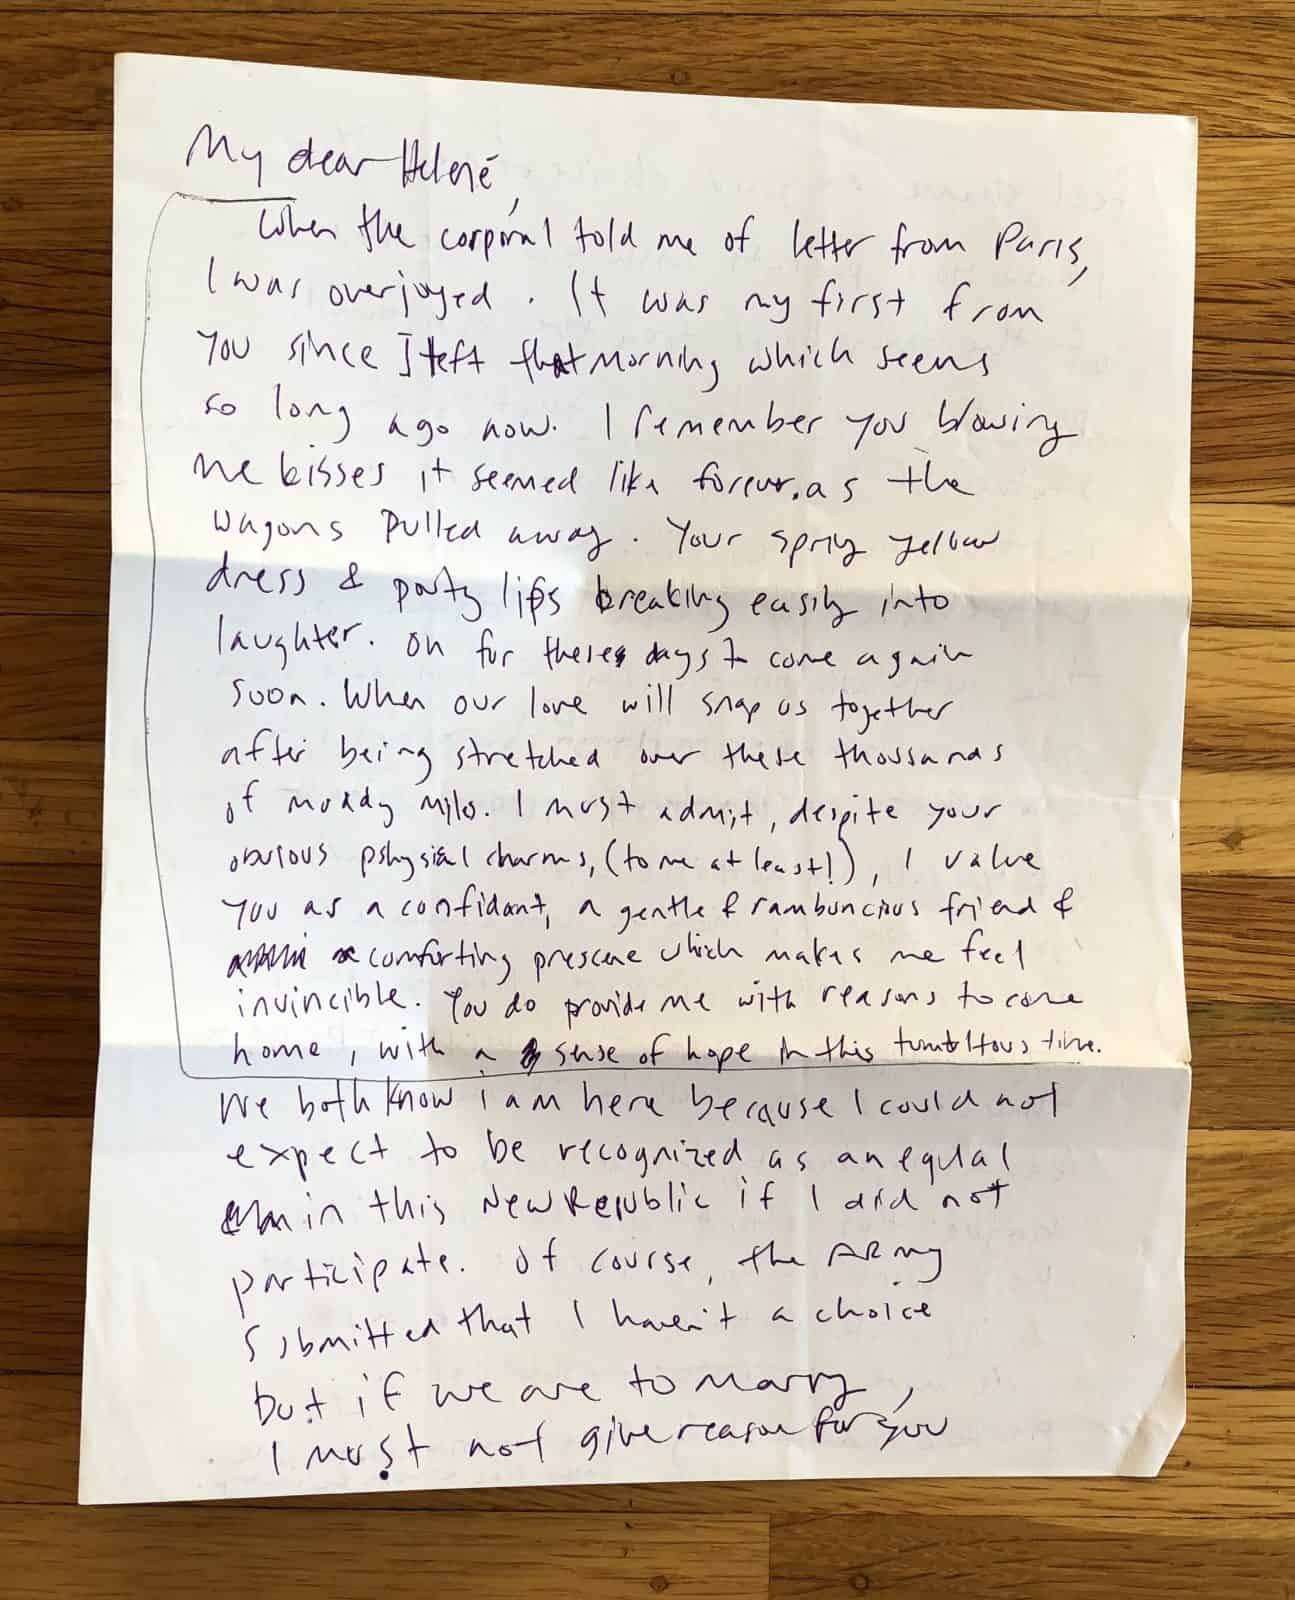 My dear Helené,
When the corpiral told me of letter from Paris,
I was overjoyed. It was my first from
You since I left that morning which seems
so long ago now. I remember you blowing
me kisses it seemed like forever, as the
wagons pulled away. Your spring yellow
dress & pouty lips breaking easily into
laughter. oh for these days to come again
soon. When our love will snap us together
after being stretched over these thousands
of muddy miles. I must admit, despite your
obvious pshysial charms, (to me at least!), I value
You as a confidant, a gentle & rambuncious friend &
comforting prescene which makes me feel
invincible. You do provide me with reasons to come
home, with a sense of hope in this tumultous time.
We both know i am here because I could not
expect to be recognized as an equal
in this New Republic if I did not
participate. Of course, the ARmy
submitted that I haven't a choice
but if we are to marry,
I must not give reason for you